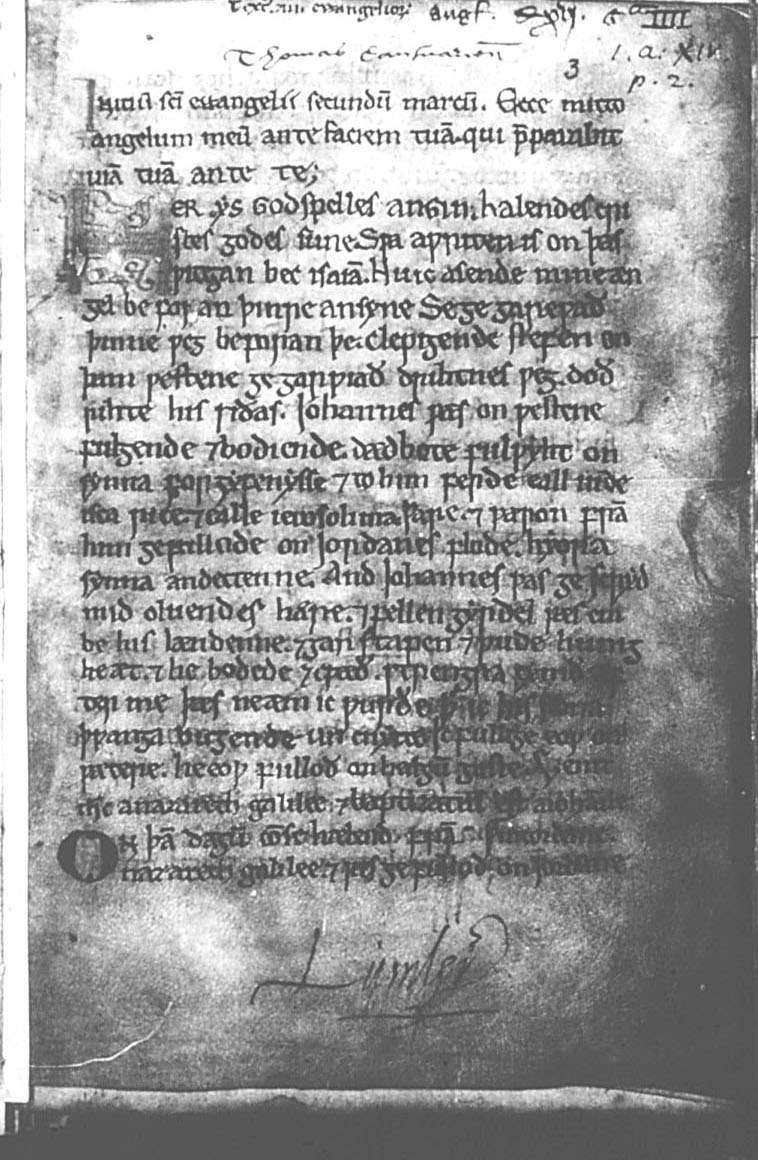 Text. iiii evangeliorum angl.
Thomas Cantuarien
3
1. a. XIV.
p. 2.
Initiū sci euangelii secundū marcū. Ecce mitto
angelum meū ante faciem tuā. qui p̄parabit
uiā tuā ante te;
ER ẏs Godspelles angin. halendes cri
stes godes sune. Sƿa aƿriten is on þas
ƿitegan bec isaiā. Nu ic asende minne æn
gel be for an þinre ansyne Se ge gareƿað
þinne ƿeg beforan þe. clepigende stefen on
þam ƿestene ge garƿiað drihtnes ƿeg. doð
rihte his siðas. Iohannes ƿas on ƿestene
fulgende ⁊ bodiende. dædbote fulƿiht on
synna forgyfenẏsse ⁊ to him ferde eall iude
isca rice. ⁊ ealle ierosolima ƿare. ⁊ ƿæron frā
him gefullode on Iordanes flode. hyora
synna andettenne. And Iohannes ƿas ge scryd
mid oluendes hære. ⁊ fellen gyrdel ƿæs em
be his lændenne. ⁊ garstapen ⁊ ƿude hunig
he æt. ⁊ he bodede ⁊ cƿæð.
me þæs neæm ic ƿurðe
þƿanga bugende un cnytte Ic fullige eoƿ on
ƿætere. he eoƿ fulloð on halgū gaste.
ihc a nazareth galilee. ⁊ baptizatus est a iohanne
On þā dagū com se hælend frā
nazareth galilee. ⁊ ƿæs ge fullod. on Iordane
Lumley